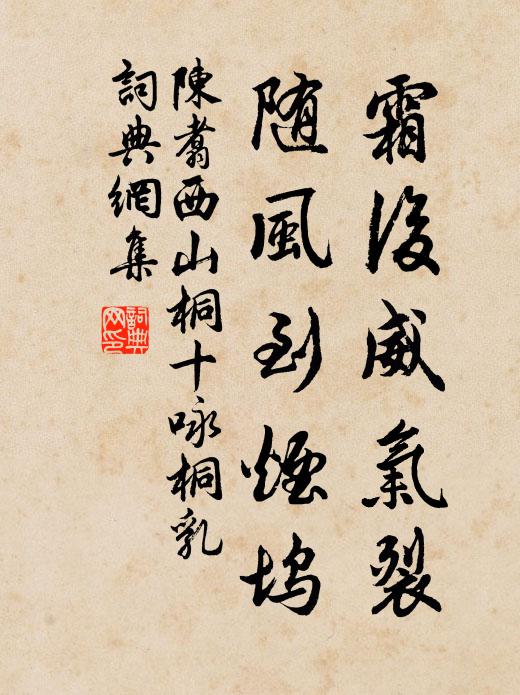 霜後威氣裂
随風到煙塢
陳翥西山桐十咏桐乳
詞典網集
詞典
网印